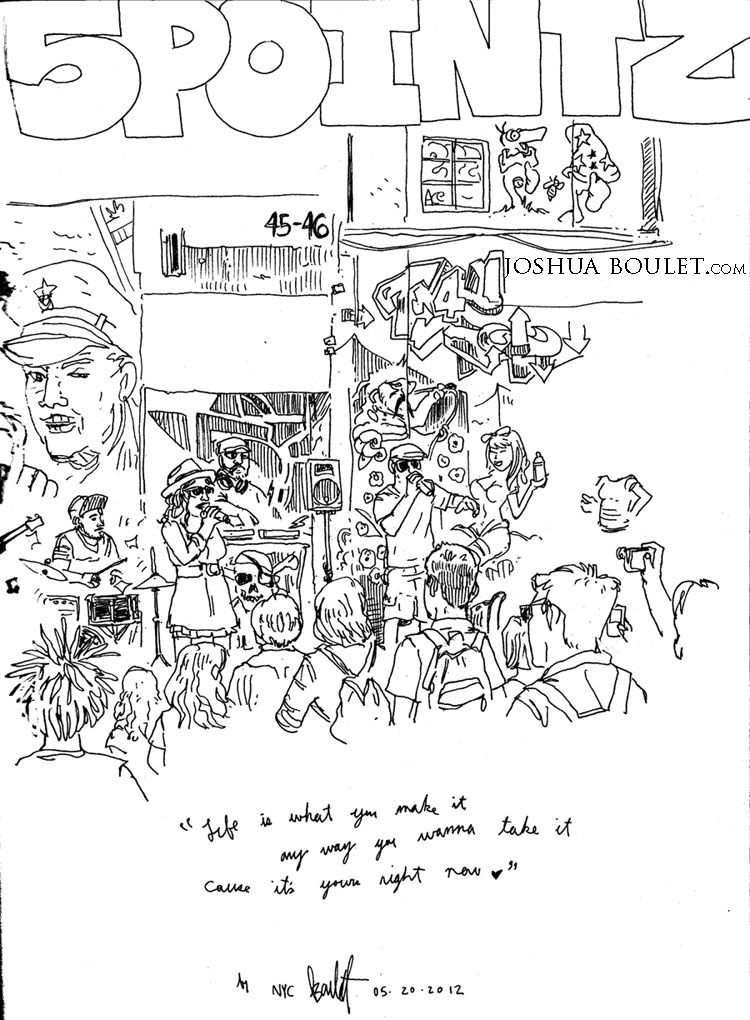 5POINTZ
45-46
JOSHUA BOULET.COM
"Life is what you make it
any way you wanna take it
cause it's yours right now ♥"
NYC Boulet 05.20.2012